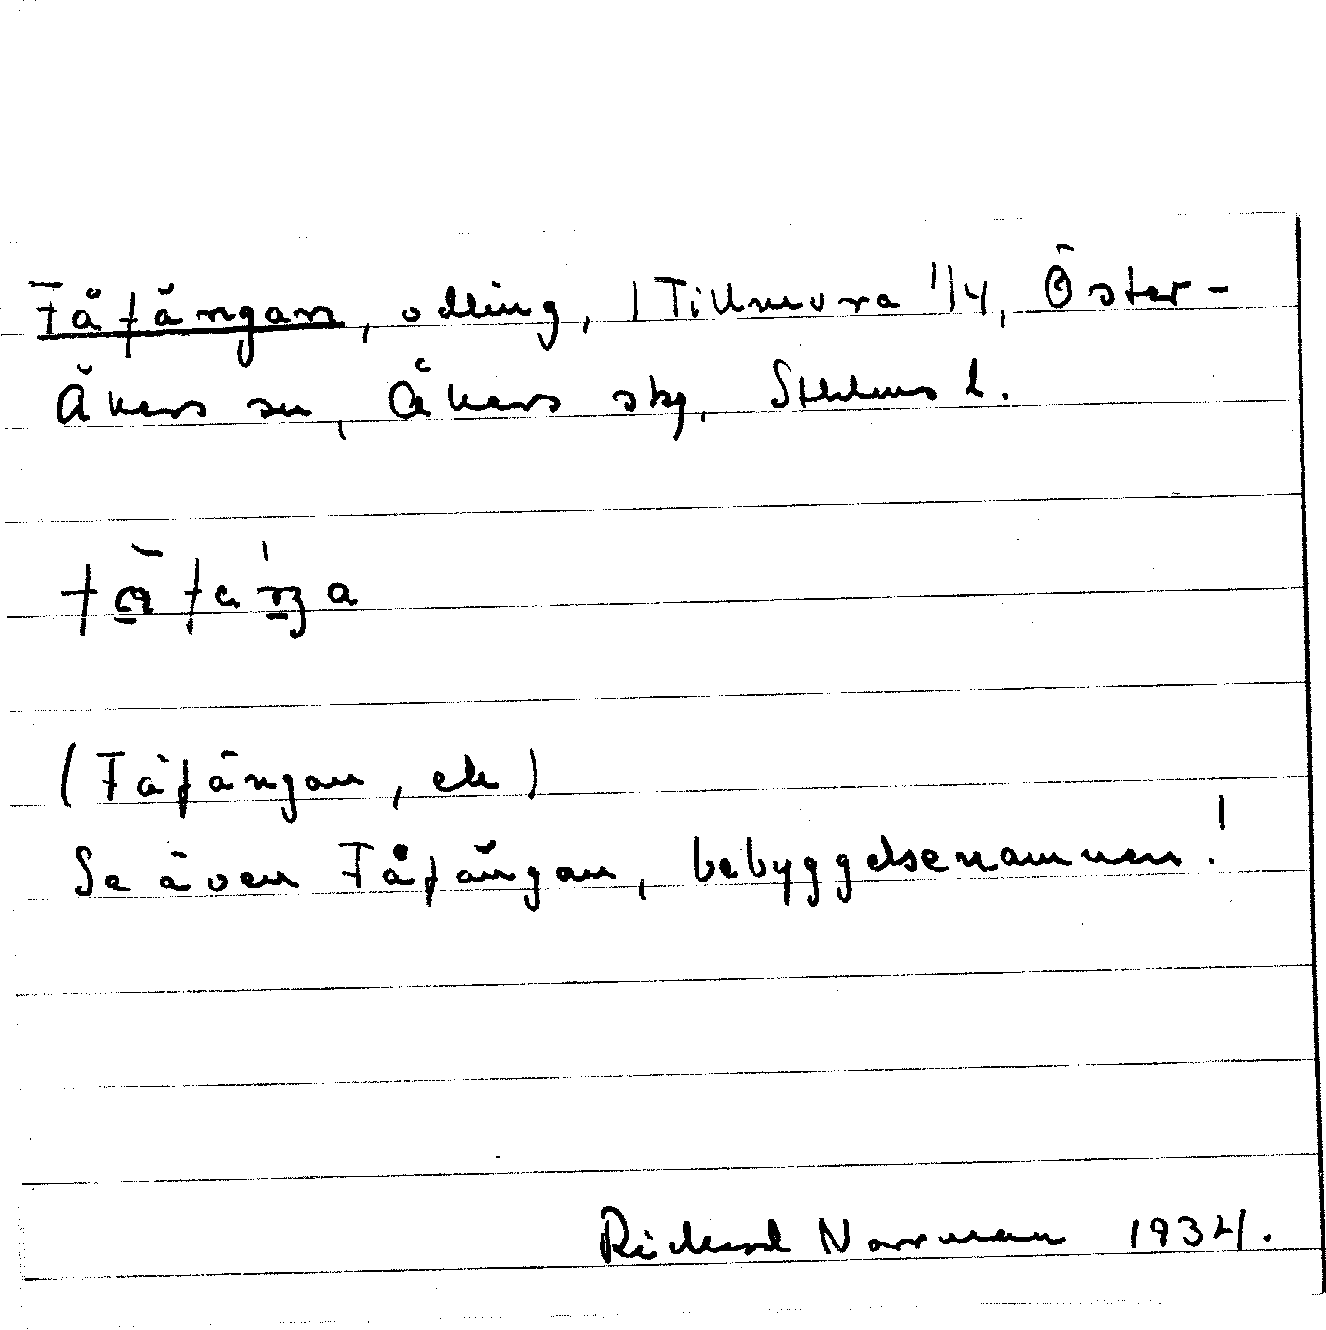 Fåfängan, odling, 1 Tillmora 1/4, Öster-
Åkers sn, Åkers skg, Sthlms l.
(Fåfängan, ek)
Se även Fåfängan, bebyggelsenamnen!
Richard Norrman 1934.